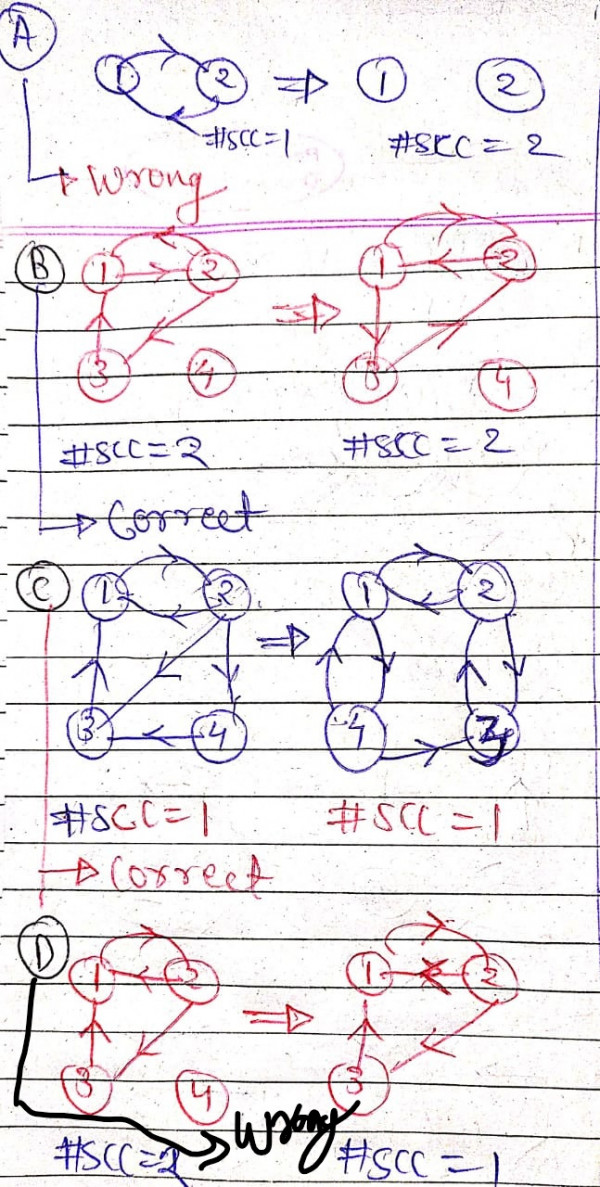 A
1 2 ⇒ 1 2
#SCC=1 #SCC = 2
→ Wrong
B
1 2 ⇒ 1 2
3 4 3 4
#SCC=2 #SCC = 2
→ Correct
C
1 2 ⇒ 1 2
3 4 4 3
#SCC=1 #SCC = 1
→ Correct
D
1 2 ⇒ 1 2
3 4 3
→ Wrong
#SCC=2 #SCC = 1